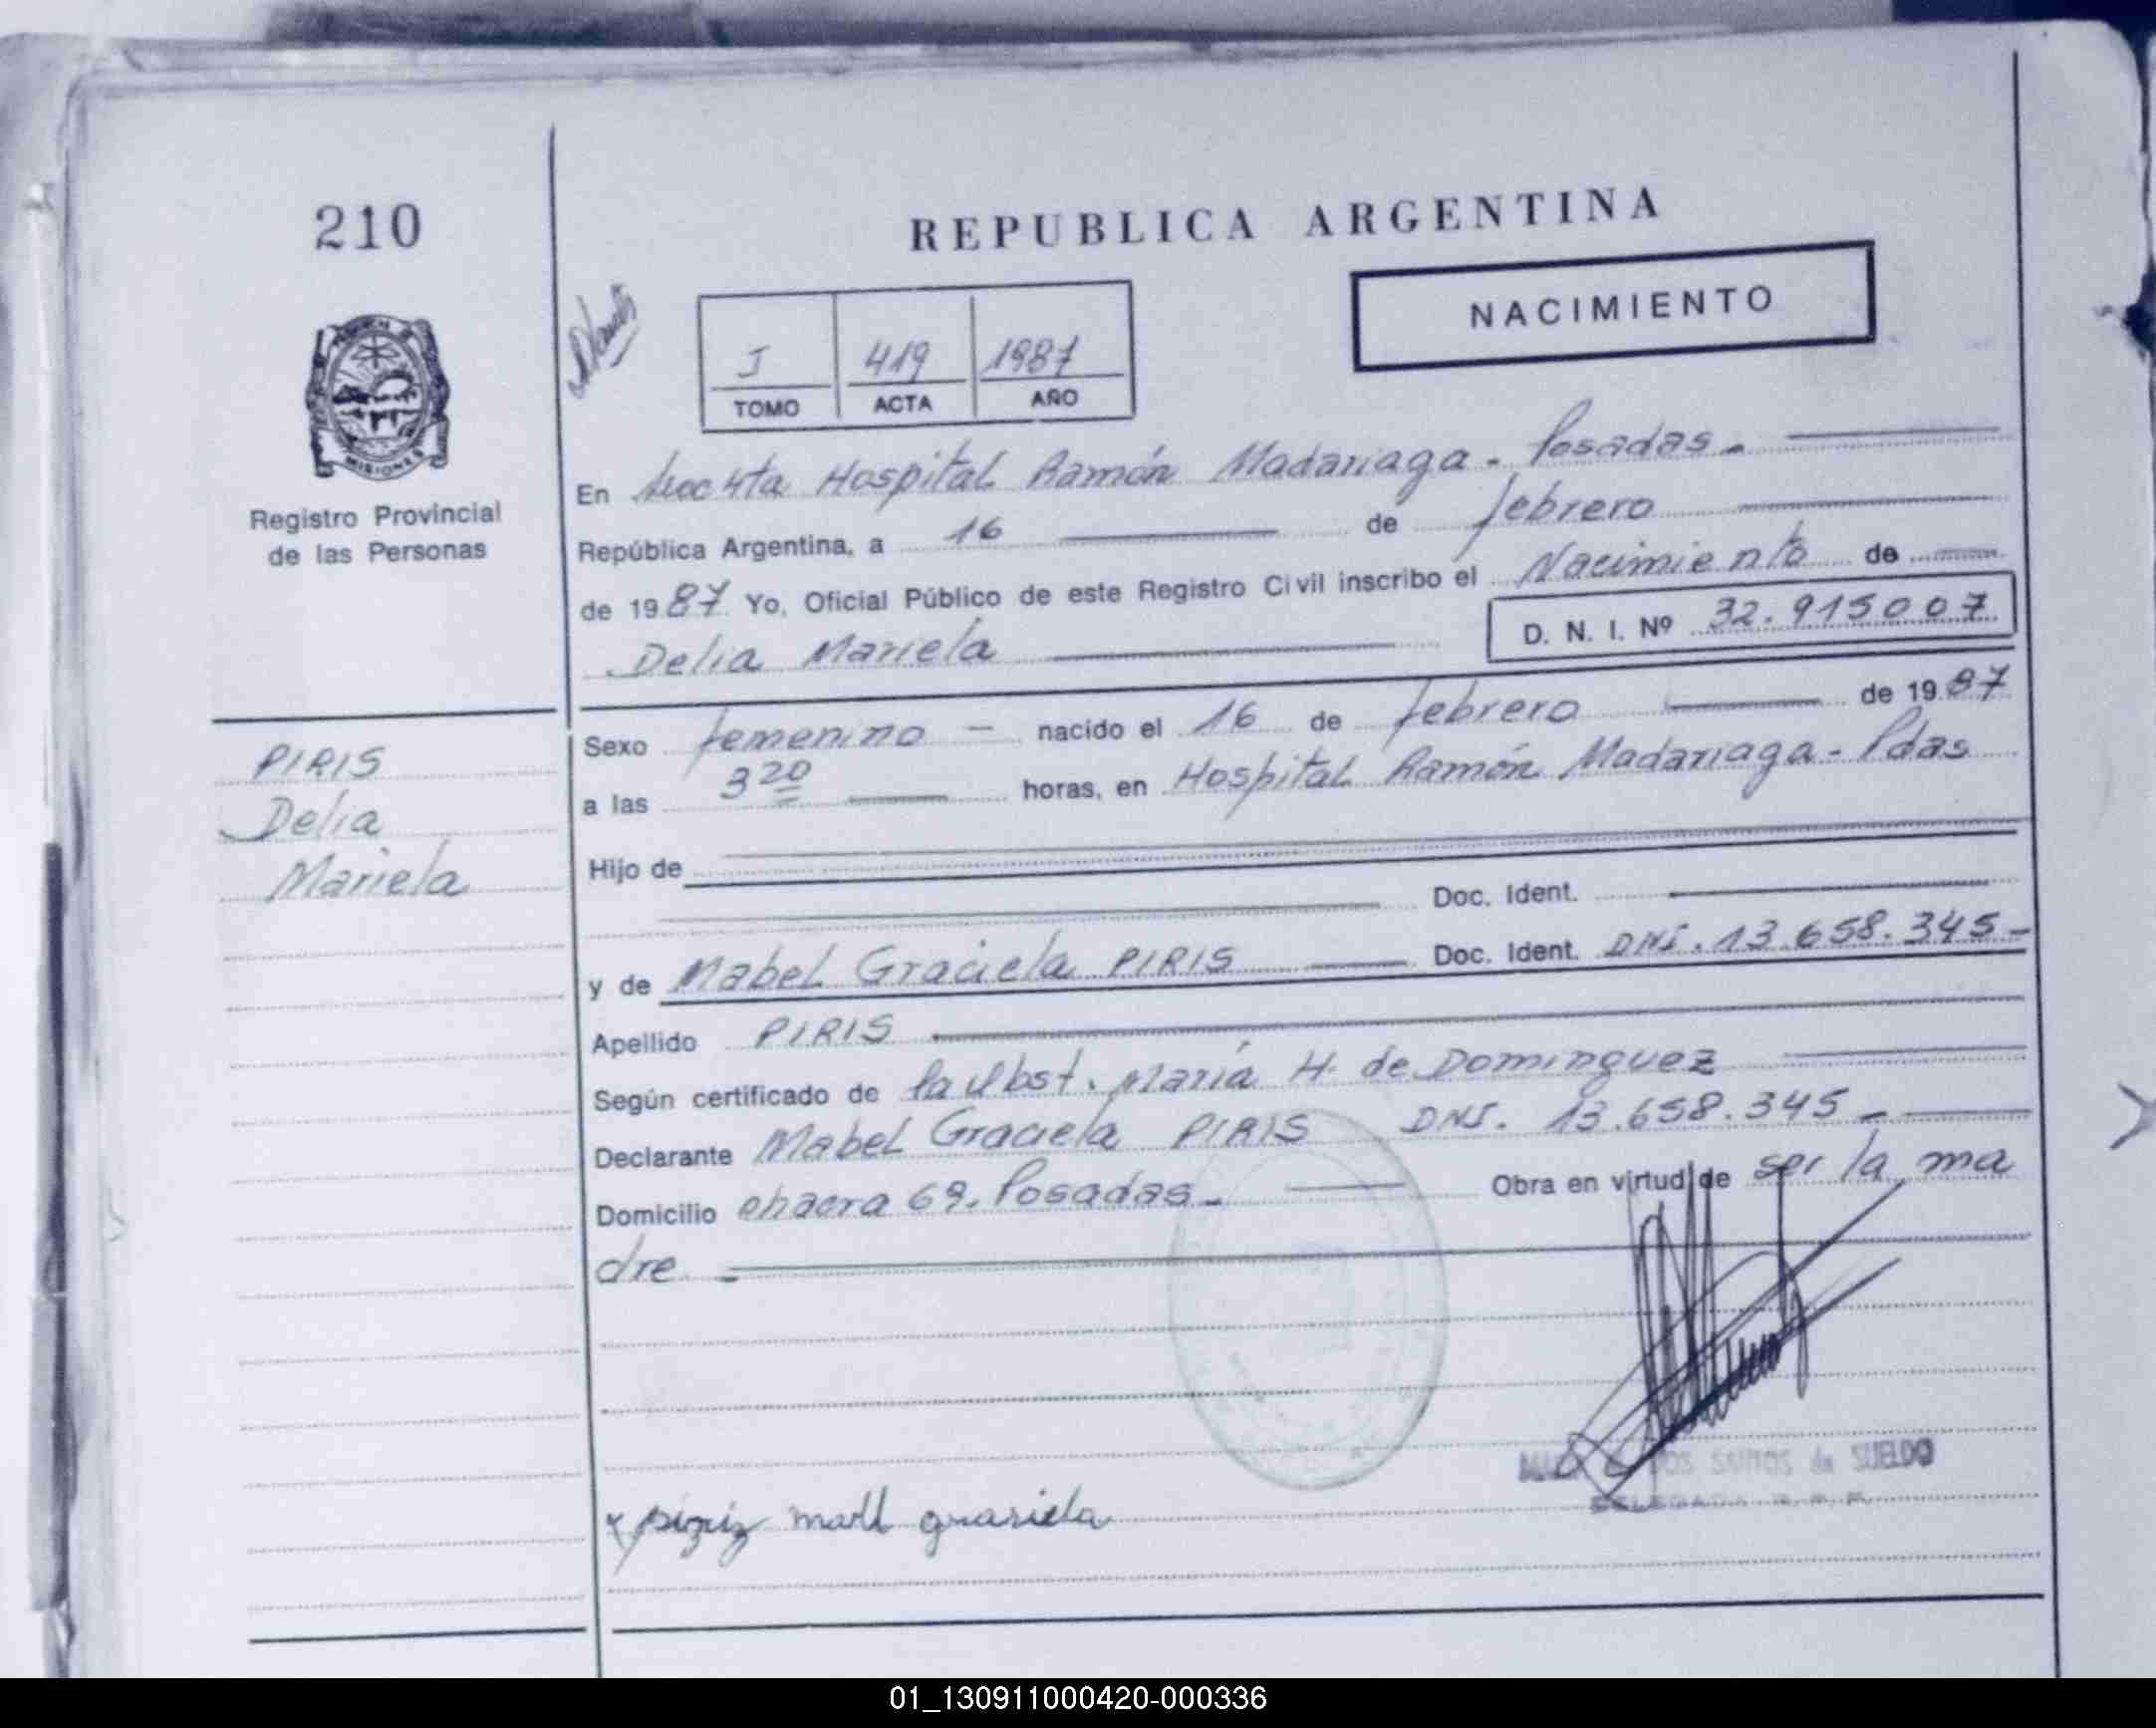 210
REPUBLICA ARGENTINA
NACIMIENTO
J 419 1987
TOMO ACTA AÑO
MISIONES
Registro Provincial
de las Personas
En Hospital Ramón Madariaga - Posadas -
República Argentina, a 16 de febrero
de 1987 Yo, Oficial Público de este Registro Civil inscribo el Nacimiento de
Delia Mariela D. N. I. Nº 32.915007
PIRIS
Delia
Mariela
Sexo femenino - nacido el 16 de febrero de 1987
a las 3 20 horas, en Hospital Ramón Madariaga - Pdas
Hijo de
Doc. Ident.
y de Mabel Graciela PIRIS Doc. Ident. DNI. 13.658.345 -
Apellido PIRIS
Según certificado de la Obst. María H. de Dominguez
Declarante Mabel Graciela PIRIS DNI. 13.658.345 -
Domicilio chacra 69. Posadas - Obra en virtud de ser la ma
dre
DOS SANTOS de SUELDO
DELEGADA R. P. P.
x piriz graciela
01_130911000420-000336